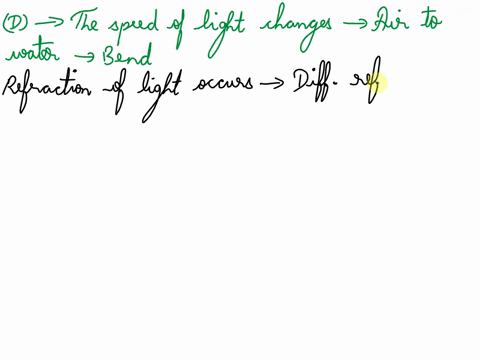 (D) → The speed of light changes → Air to
water → Bend
Refraction of light occurs → Diff. ref